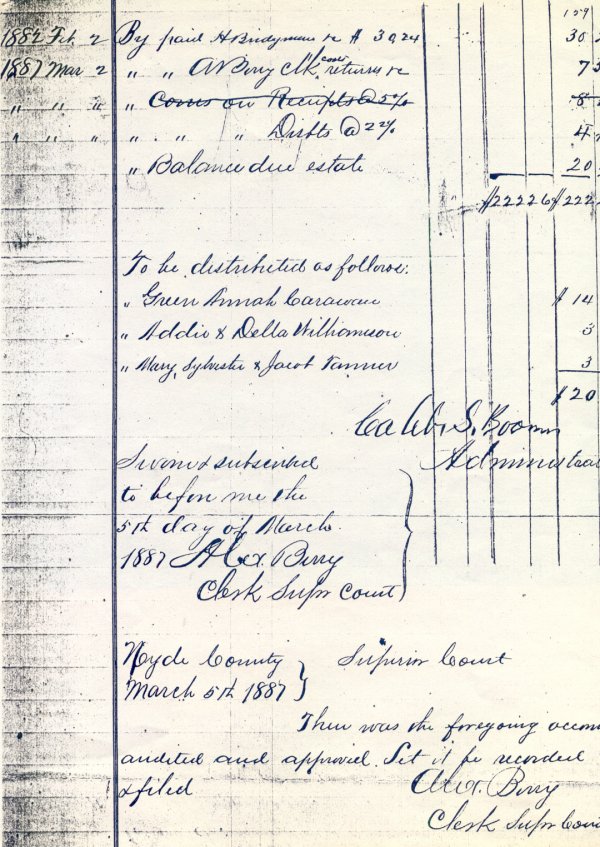 129
1882 Feb. 2 By paid A Bridgman rc $ 30,24 30
1887 Mar 2 " " A Berry Clk cost returns rc 7
" " " " Coms on Receipts @ 5% 8
" " " " " " Disbts @ 2 2% 4
" Balance due estate 20
$222 26 $222
To be distributed as follows:
" Green Annah Carawan $ 14
" Addie & Della Williamson 3
" Mary, Sylvester & Jacob Tanner 3
$20
Caleb S. Boomer
Administrat
Sworn & subscribed
to before me the
5th day of March
1887 Alex. Berry
Clerk Supr Court
Hyde County Superior Court
March 5th 1887
Then was the foregoing accou
audited and approved. Let it be recorded
& filed
Alex. Berry
Clerk Supr Cour